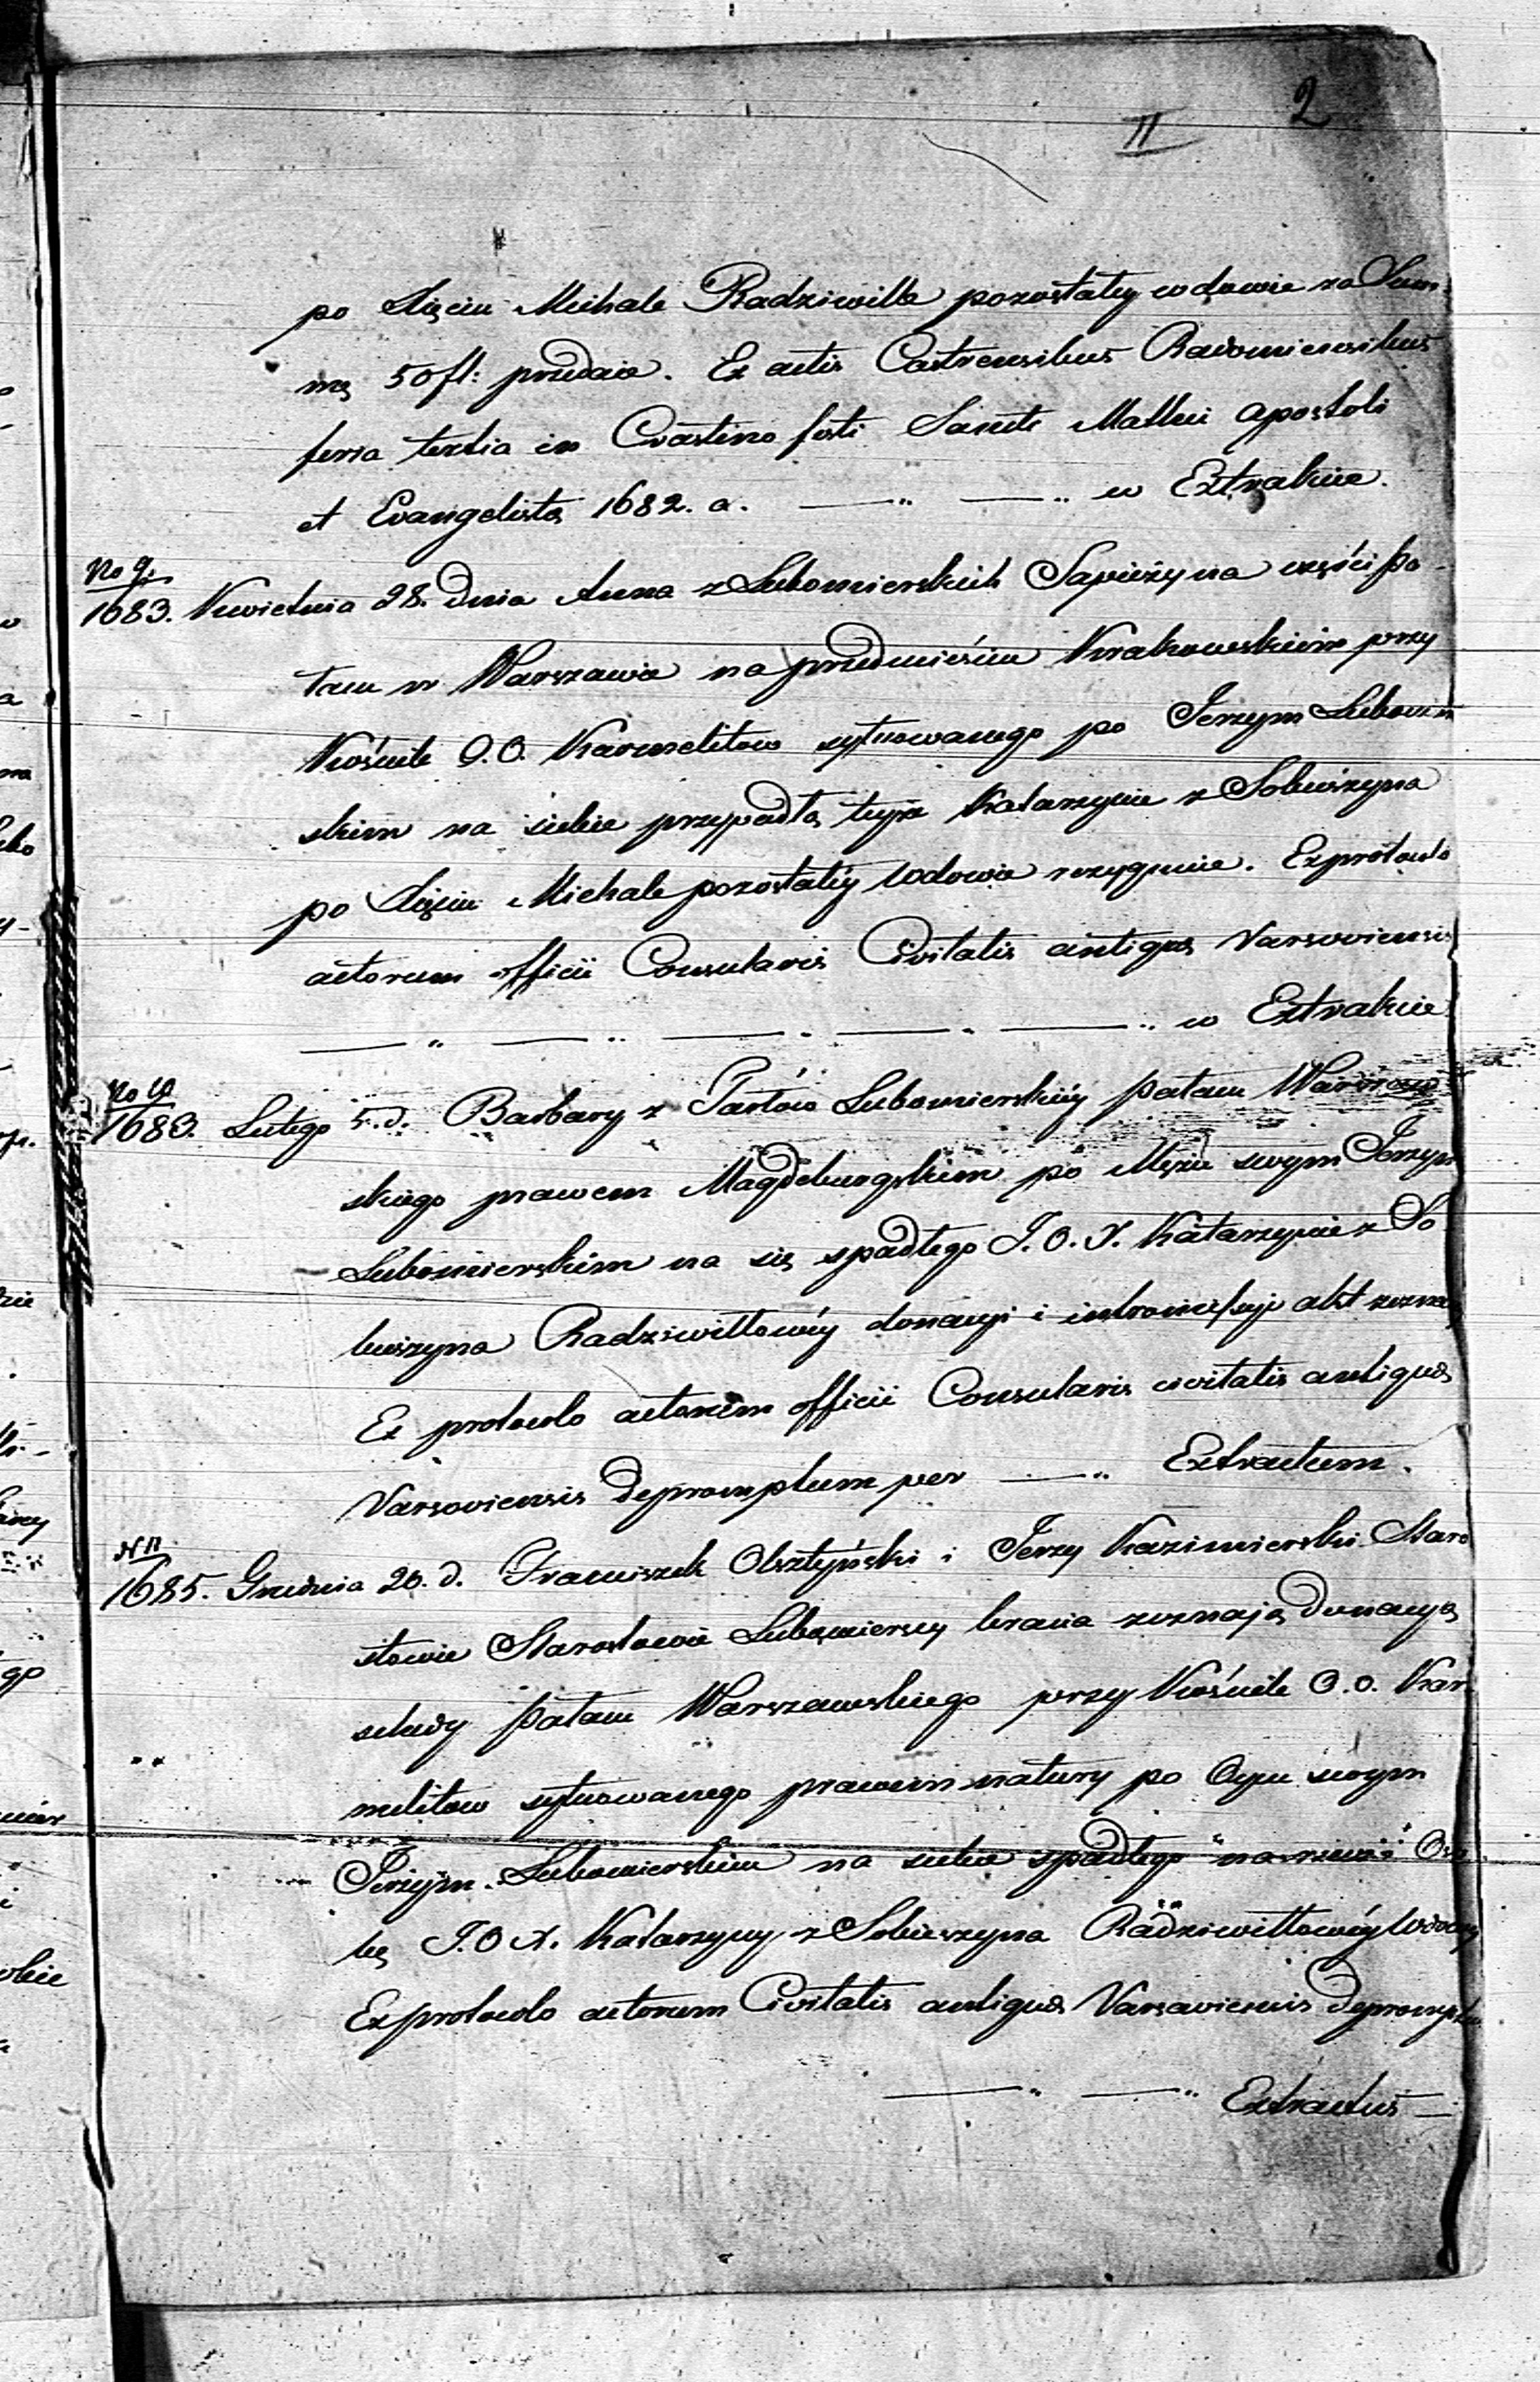 2
II
po Xięciu Michale Radziwille pozostałey wdowie za Sum-
mę 50 fl: przedaie. Ex actis Castrensibus Radomiensibus
feria tertia in Crastino festi Sancti Mathei Apostoli
et Evangelista 1682. a. —„ —„ w Extrakcie.
No 9.
1683. Kwietnia 28. Dnia Anna z Lubomierskich Sapieżyna części pa-
łacu w Warszawie na przedmieściu Krakowskiem przy
Kościele O.O. Karmelitow sytuowanego po Jerzym Lubomir
skim na siebie przypadłą teyże Katarzynie z Sobieszyna
po Xięciu Michale pozostałéy wdowie rezygnuie. Ex protocolo
actorum officii Consularis Civitatis antiqua Varsoviensis
—„ —„ —„ —„ —„ w Extrakcie
No 10
1683. Lutego 5. d. Barbary z Tarłów Lubomierskiéy pałacu Warszaw
skiego prawem Magdeburgskim po Mężu swym Jerzym
Lubomierskim na się spadłego J. O. X. Katarzynie z So-
bieszyna Radziwiłłowéy donacyi i intromissyi akt zezna
Ex protocolo actorum officii Consularis civitatis antiqua
Varsoviensis depromptum per —„ Extractum.
N 11
1685. Grudnia 20. d. Franciszek Olsztyński i Jerzy Kazimierski Staro
stowie Starostowie Lubomierscy bracia zeznają donacyą
schedy pałacu Warszawskiego przy Kościele O.O. Kar
melitow sytuowanego prawem natury po Oycu swym
Jerzym Lubomierskim na siebie spadłego na rzecz Oso
bę J.O.X. Katarzyny z Sobieszyna Radziwiłłowéy Wdowy
Ex protocolo actorum Civitatis antiqua Varsaviensis depromptum
—„ —„ Extractus —